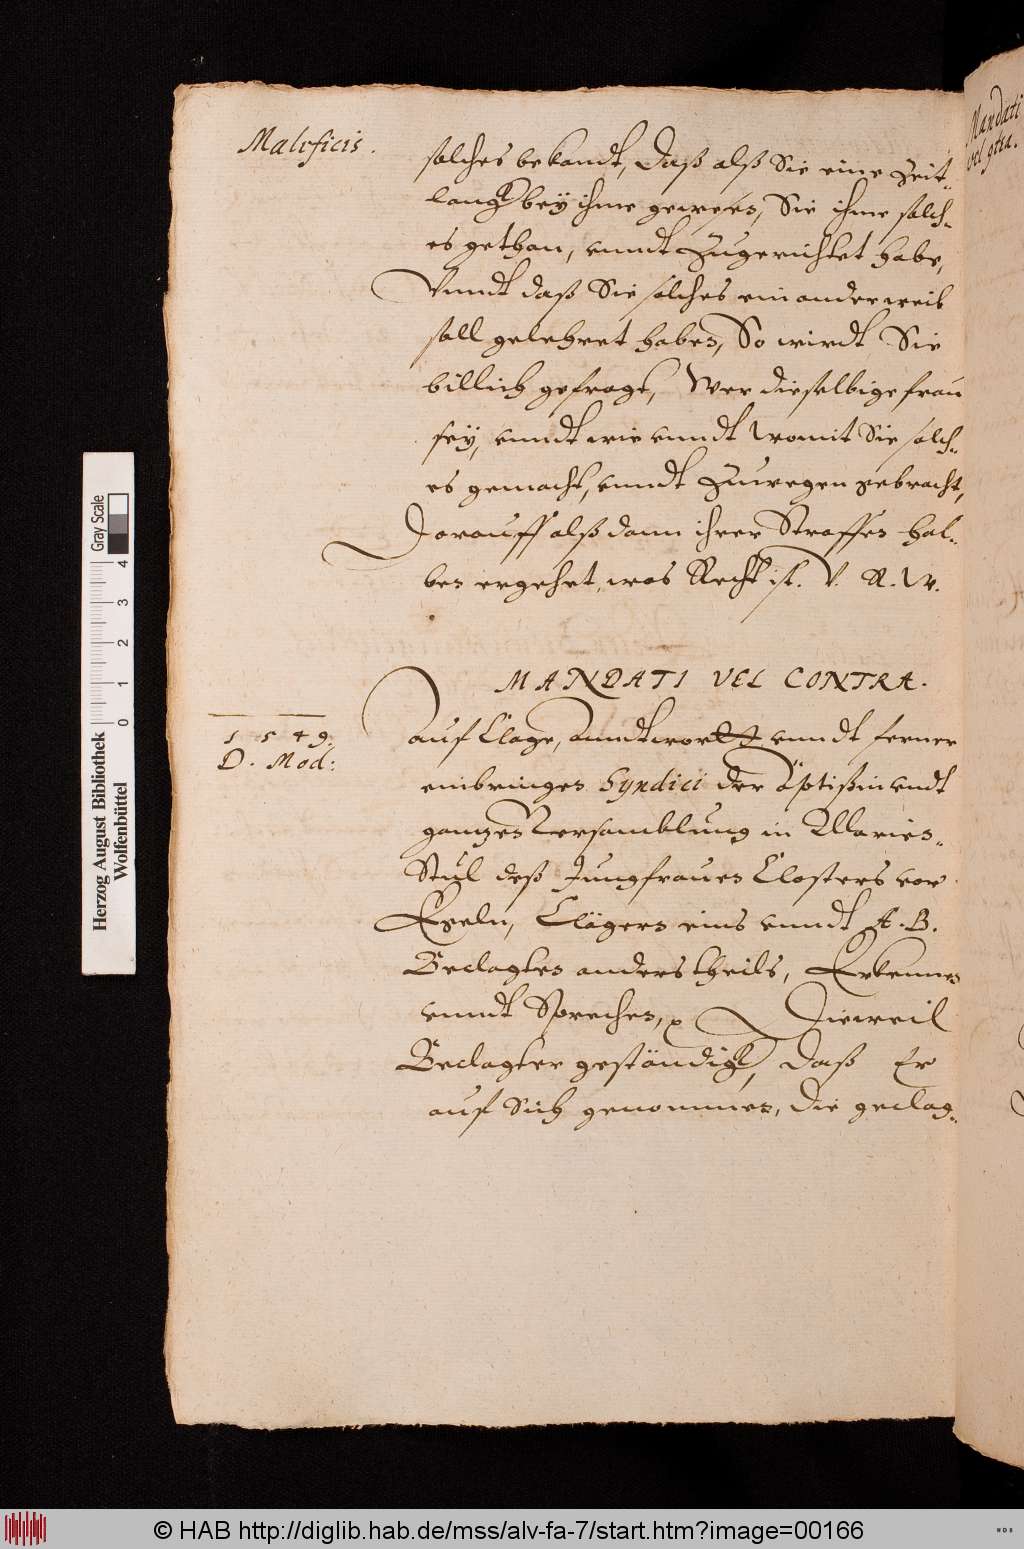 Maleficis.
solches bekandt, Daß alß Sie eine Zeit-
lang bey ihme gewesen, Sie ihme solch-
es gethan, vnndt Zugerichtet habe,
Vnndt daß Sie solches ein ander weib
soll gelehret haben, So wirdt Sie
billich gefragt, Wer dieselbige frau
sey, vnndt wie vnndt womit Sie solch-
es gemacht, vnndt Zuwegen gebracht,
Darauff alß dann ihrer Straffen hal-
ben ergehet, was Recht ist. V. R. W.
MANDATI VEL CONTRA.
1549.
D. Mod:
auf Clage, Anndtwortt vnndt ferner
einbringen Syndici der Äptißin vndt
ganzen Versamblung in Marien-
Stul deß Jungfrauen Closters vor
Egeln, Clägern eins vnndt A. B.
Beclagten anders theils, Erkennen
vnndt Sprechen, Dieweil
Beclagter geständigk, daß Er
auf Sich genommen, die geclag-
Mandati
vel contra.
Herzog August Bibliothek
Wolfenbüttel
0 1 2 3 4
Gray Scale
© HAB http://diglib.hab.de/mss/alv-fa-7/start.htm?image=00166